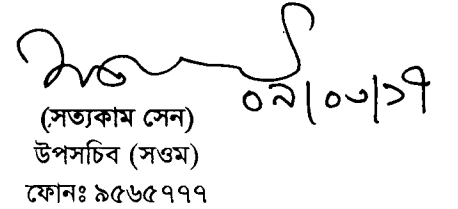 ০৯/০৩/১৭
(সত্যকাম সেন)
উপসচিব (সওম)
ফোনঃ ৯৫৬৫৭৭৭